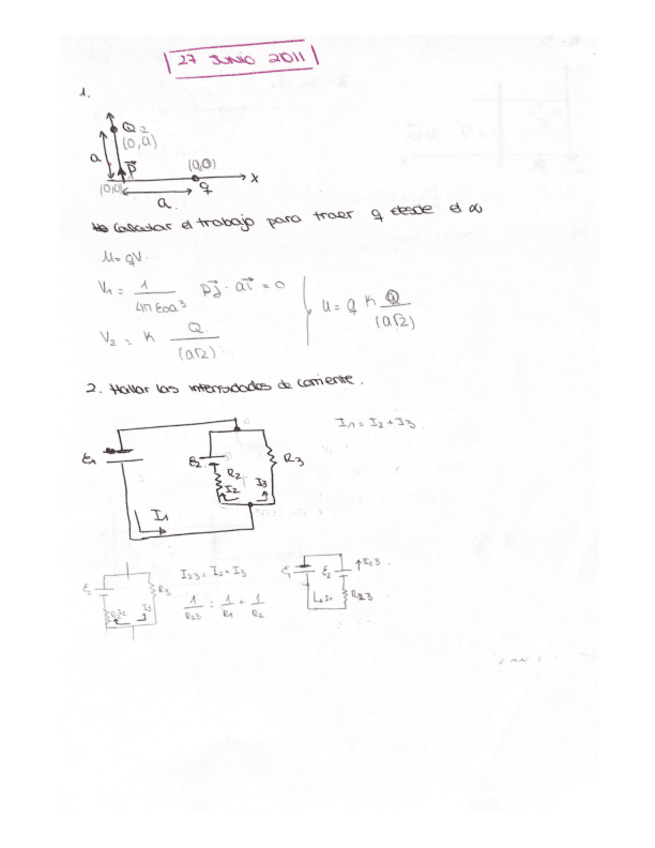 27 JUNIO 2011
1.
Q
(0,a)
a
P⃗
(0,0)
q
x
(0,0)
a
Calcular el trabajo para traer q desde el ∞
U= qV
V₁ = 1/4πε₀a³ pj⃗ · ai⃗ = 0
U = q K Q/(a√2)
V₂ = K Q/(a√2)
2. Hallar las intensidades de corriente.
I1 = I2 + I3
ε1
ε2
R2
R3
I2
I3
I1
I23 = I2 + I3
1/R23 = 1/R1 + 1/R2
ε2
R3
R2
I2
I3
ε1
ε2
I23
I1
R23